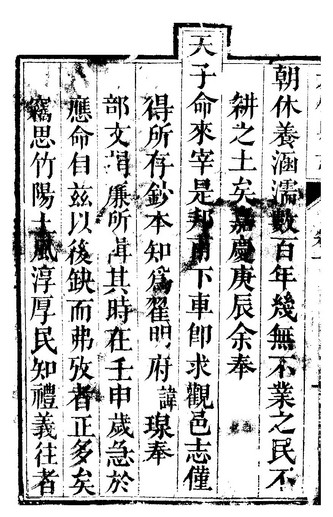 朝休養涵濡數百年幾無不業之民不
耕之土矣嘉慶庚辰余奉
天子命來宰是邦甫下車卽求觀邑志僅
得所存鈔本知爲翟明府諱瑔奉
部文檄廉所輯其時在壬申歲急於
應命自茲以後缺而弗攷者正多矣
竊思竹陽土風淳厚民知禮義往者